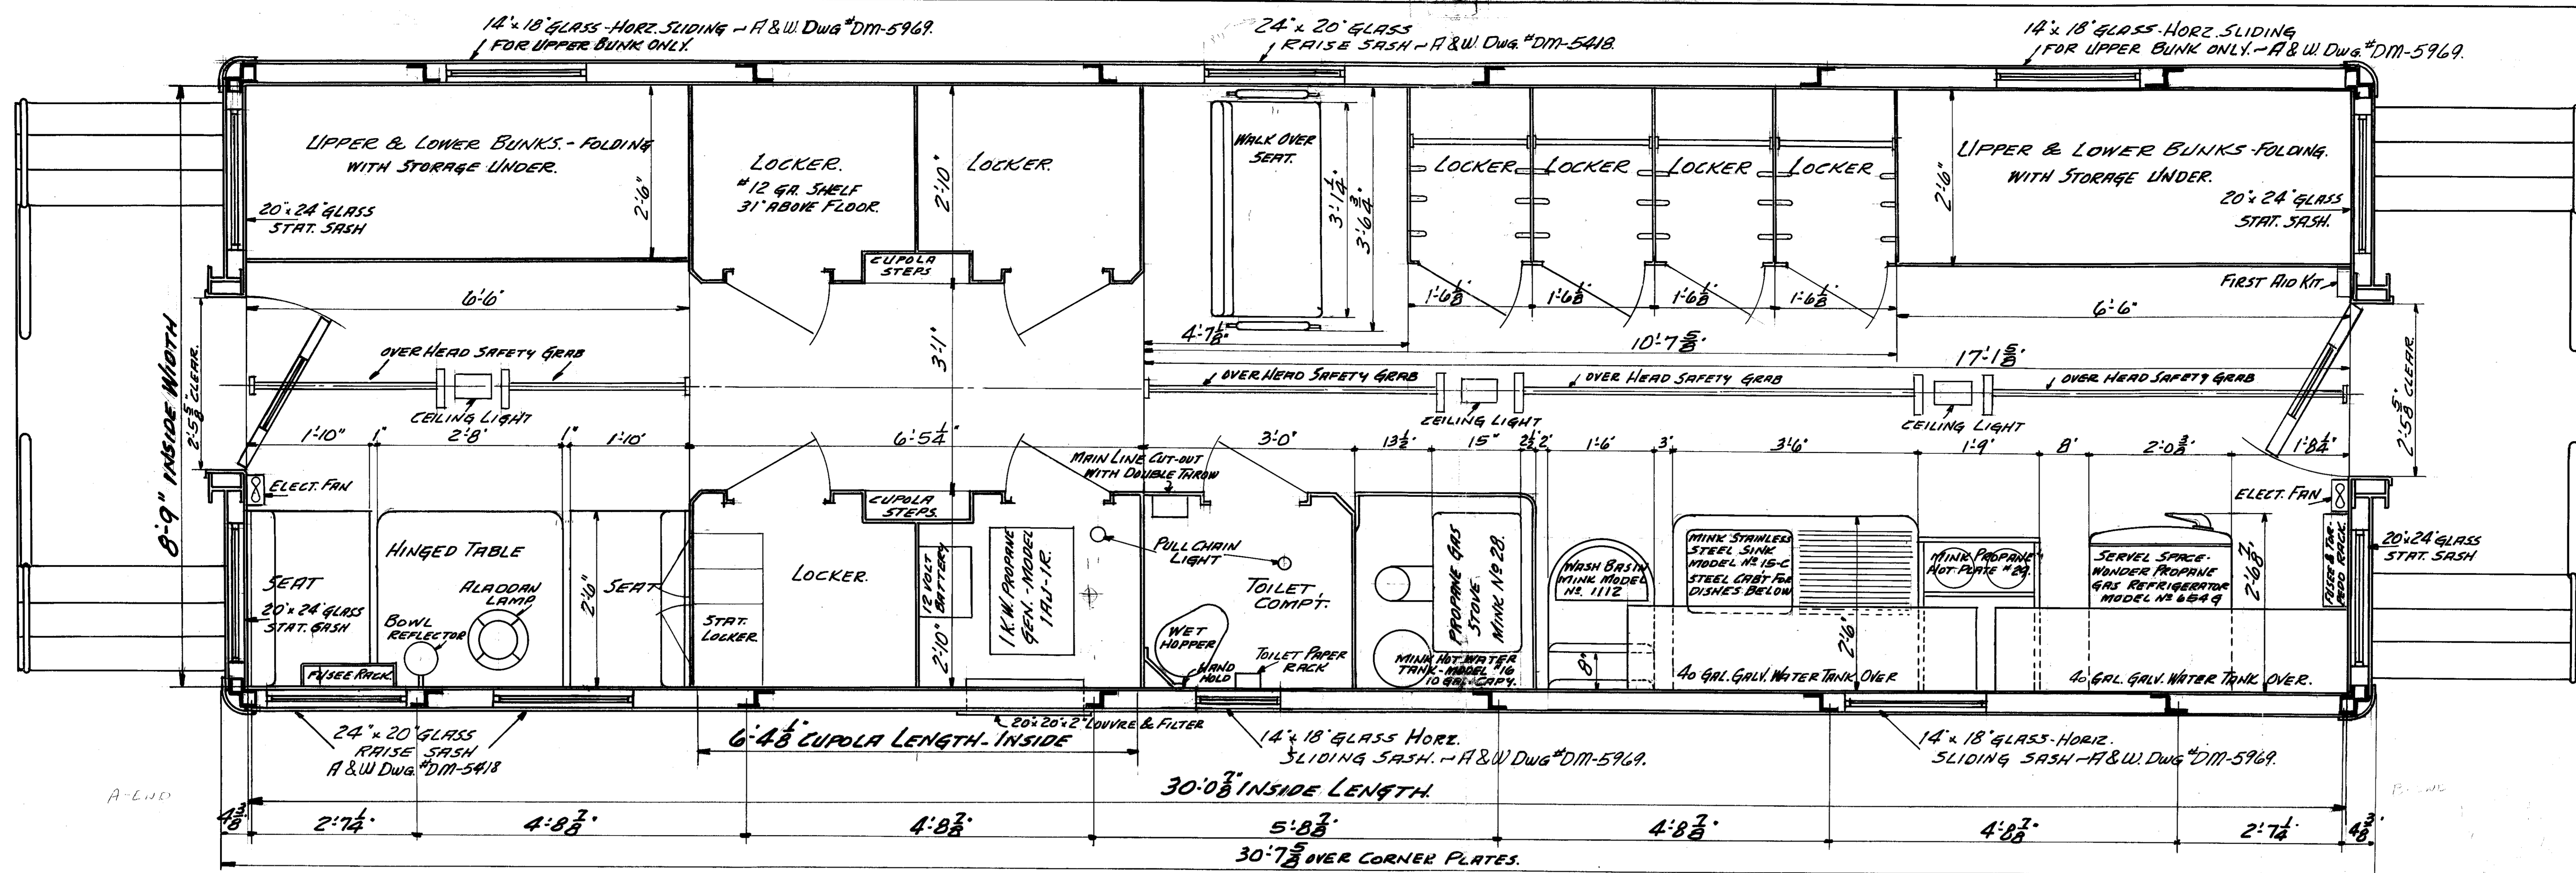 14"x 18" GLASS-HORZ. SLIDING ~ A & W. DWG #DM-5969.
FOR UPPER BUNK ONLY.
24" x 20" GLASS
RAISE SASH ~ A & W. DWG. #DM-5418.
14" x 18" GLASS-HORZ. SLIDING
FOR UPPER BUNK ONLY. ~ A & W. DWG. #DM-5969.
UPPER & LOWER BUNKS. - FOLDING
WITH STORAGE UNDER.
2'-6"
20" x 24" GLASS
STAT. SASH
LOCKER.
#12 GA. SHELF
31" ABOVE FLOOR.
2'-10"
LOCKER.
WALK OVER
SEAT.
3'-1 1/4"
3'-6 3/4"
LOCKER
LOCKER
LOCKER
LOCKER
2'-6"
UPPER & LOWER BUNKS - FOLDING.
WITH STORAGE UNDER.
20" x 24" GLASS
STAT. SASH.
CUPOLA
STEPS
FIRST AID KIT
6'-6"
1'-6 1/8"
1'-6 1/8"
1'-6 1/8"
1'-6 1/8"
6'-6"
4'-7 1/8"
10'-7 5/8"
17'-1 5/8"
8'-9" INSIDE WIDTH
2'-5 5/8" CLEAR.
OVER HEAD SAFETY GRAB
CEILING LIGHT
3'-1"
OVER HEAD SAFETY GRAB
OVER HEAD SAFETY GRAB
OVER HEAD SAFETY GRAB
CEILING LIGHT
CEILING LIGHT
2'-5 5/8" CLEAR.
1'-10"
1"
2'-8"
1"
1'-10"
6'-5 1/4"
3'-0"
13 1/2"
15"
2 1/2"
2"
1'-6"
3"
3'-6"
1'-9"
8"
2'-0 3/8"
1'-8 1/4"
MAIN LINE CUT-OUT
WITH DOUBLE THROW
ELECT. FAN
CUPOLA
STEPS.
ELECT. FAN
SEAT
20" x 24" GLASS
STAT. SASH
HINGED TABLE
ALADDAN
LAMP
BOWL
REFLECTOR
FUSEE RACK.
2'-6"
SEAT
STAT.
LOCKER
LOCKER.
12 VOLT
BATTERY
2'-10"
1 K.W. PROPANE
GEN. - MODEL
1AJ-1R.
PULL CHAIN
LIGHT
TOILET
COMPT.
WET
HOPPER
HAND
HOLD
TOILET PAPER
RACK
PROPANE GAS
STOVE
MINK No 28.
MINK HOT WATER
TANK-MODEL #16
10 GAL. CAPY.
WASH BASIN
MINK MODEL
No. 1112
8"
MINK STAINLESS
STEEL SINK
MODEL No 15-C
STEEL CABT FOR
DISHES BELOW
2'-6"
40 GAL. GALV. WATER TANK OVER
MINK PROPANE
HOT-PLATE #29.
SERVEL SPACE-
WONDER PROPANE
GAS REFRIGERATOR
MODEL No 654 G
2'-6 7/8"
40 GAL. GALV. WATER TANK OVER.
FUSEE & TOR-
PEDO RACK.
20" x 24" GLASS
STAT. SASH
24" x 20" GLASS
RAISE SASH
A & W DWG. #DM-5418
20" x 20" x 2" LOUVRE & FILTER
6'-4 1/8" CUPOLA LENGTH-INSIDE
14" x 18" GLASS HORZ.
SLIDING SASH. ~ A & W DWG #DM-5969.
14" x 18" GLASS-HORIZ.
SLIDING SASH ~ A & W. DWG #DM-5969.
A-END
30'-0 7/8" INSIDE LENGTH.
4 3/8"
2'-7 1/4"
4'-8 7/8"
4'-8 7/8"
5'-8 7/8"
4'-8 7/8"
4'-8 7/8"
2'-7 1/4"
4 3/8"
30'-7 5/8" OVER CORNER PLATES.